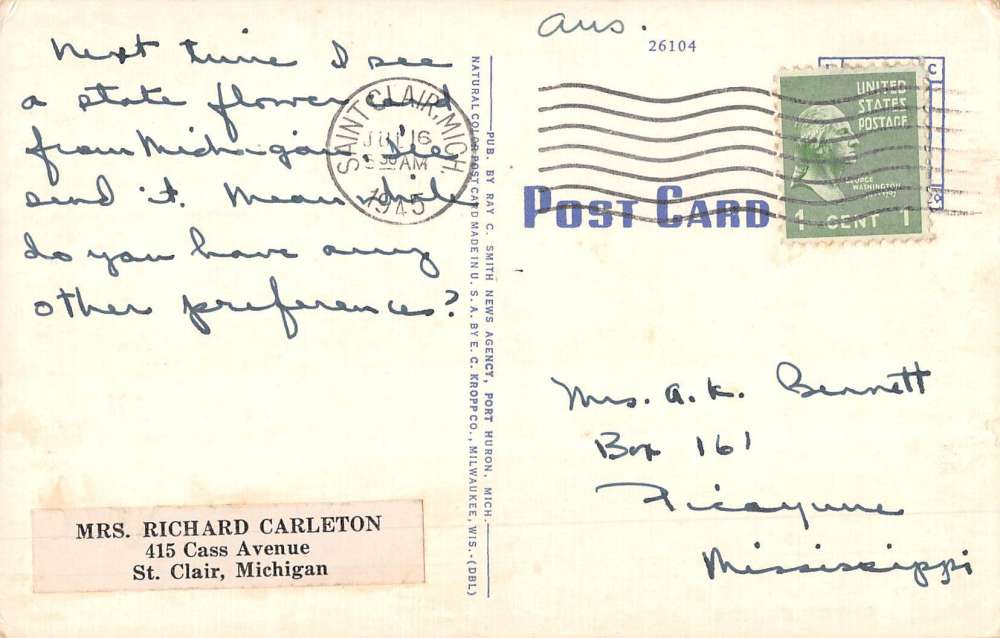 Next time I see
a state flower card
from Michigan I'll
send it. Mean while
do you have any
other preference?
MRS. RICHARD CARLETON
415 Cass Avenue
St. Clair, Michigan
SAINT CLAIR, MICH.
JUL 16
5 30 AM
1945
PUB. BY RAY C. SMITH NEWS AGENCY, PORT HURON, MICH.
NATURAL COLOR POST CARD MADE IN U. S. A. BY E. C. KROPP CO., MILWAUKEE, WIS.-(DBL)
Ans.
26104
POST CARD
UNITED
STATES
POSTAGE
GEORGE
WASHINGTON
1 CENT 1
Mrs. A. K. Bennett
Box 161
Picayune
Mississippi